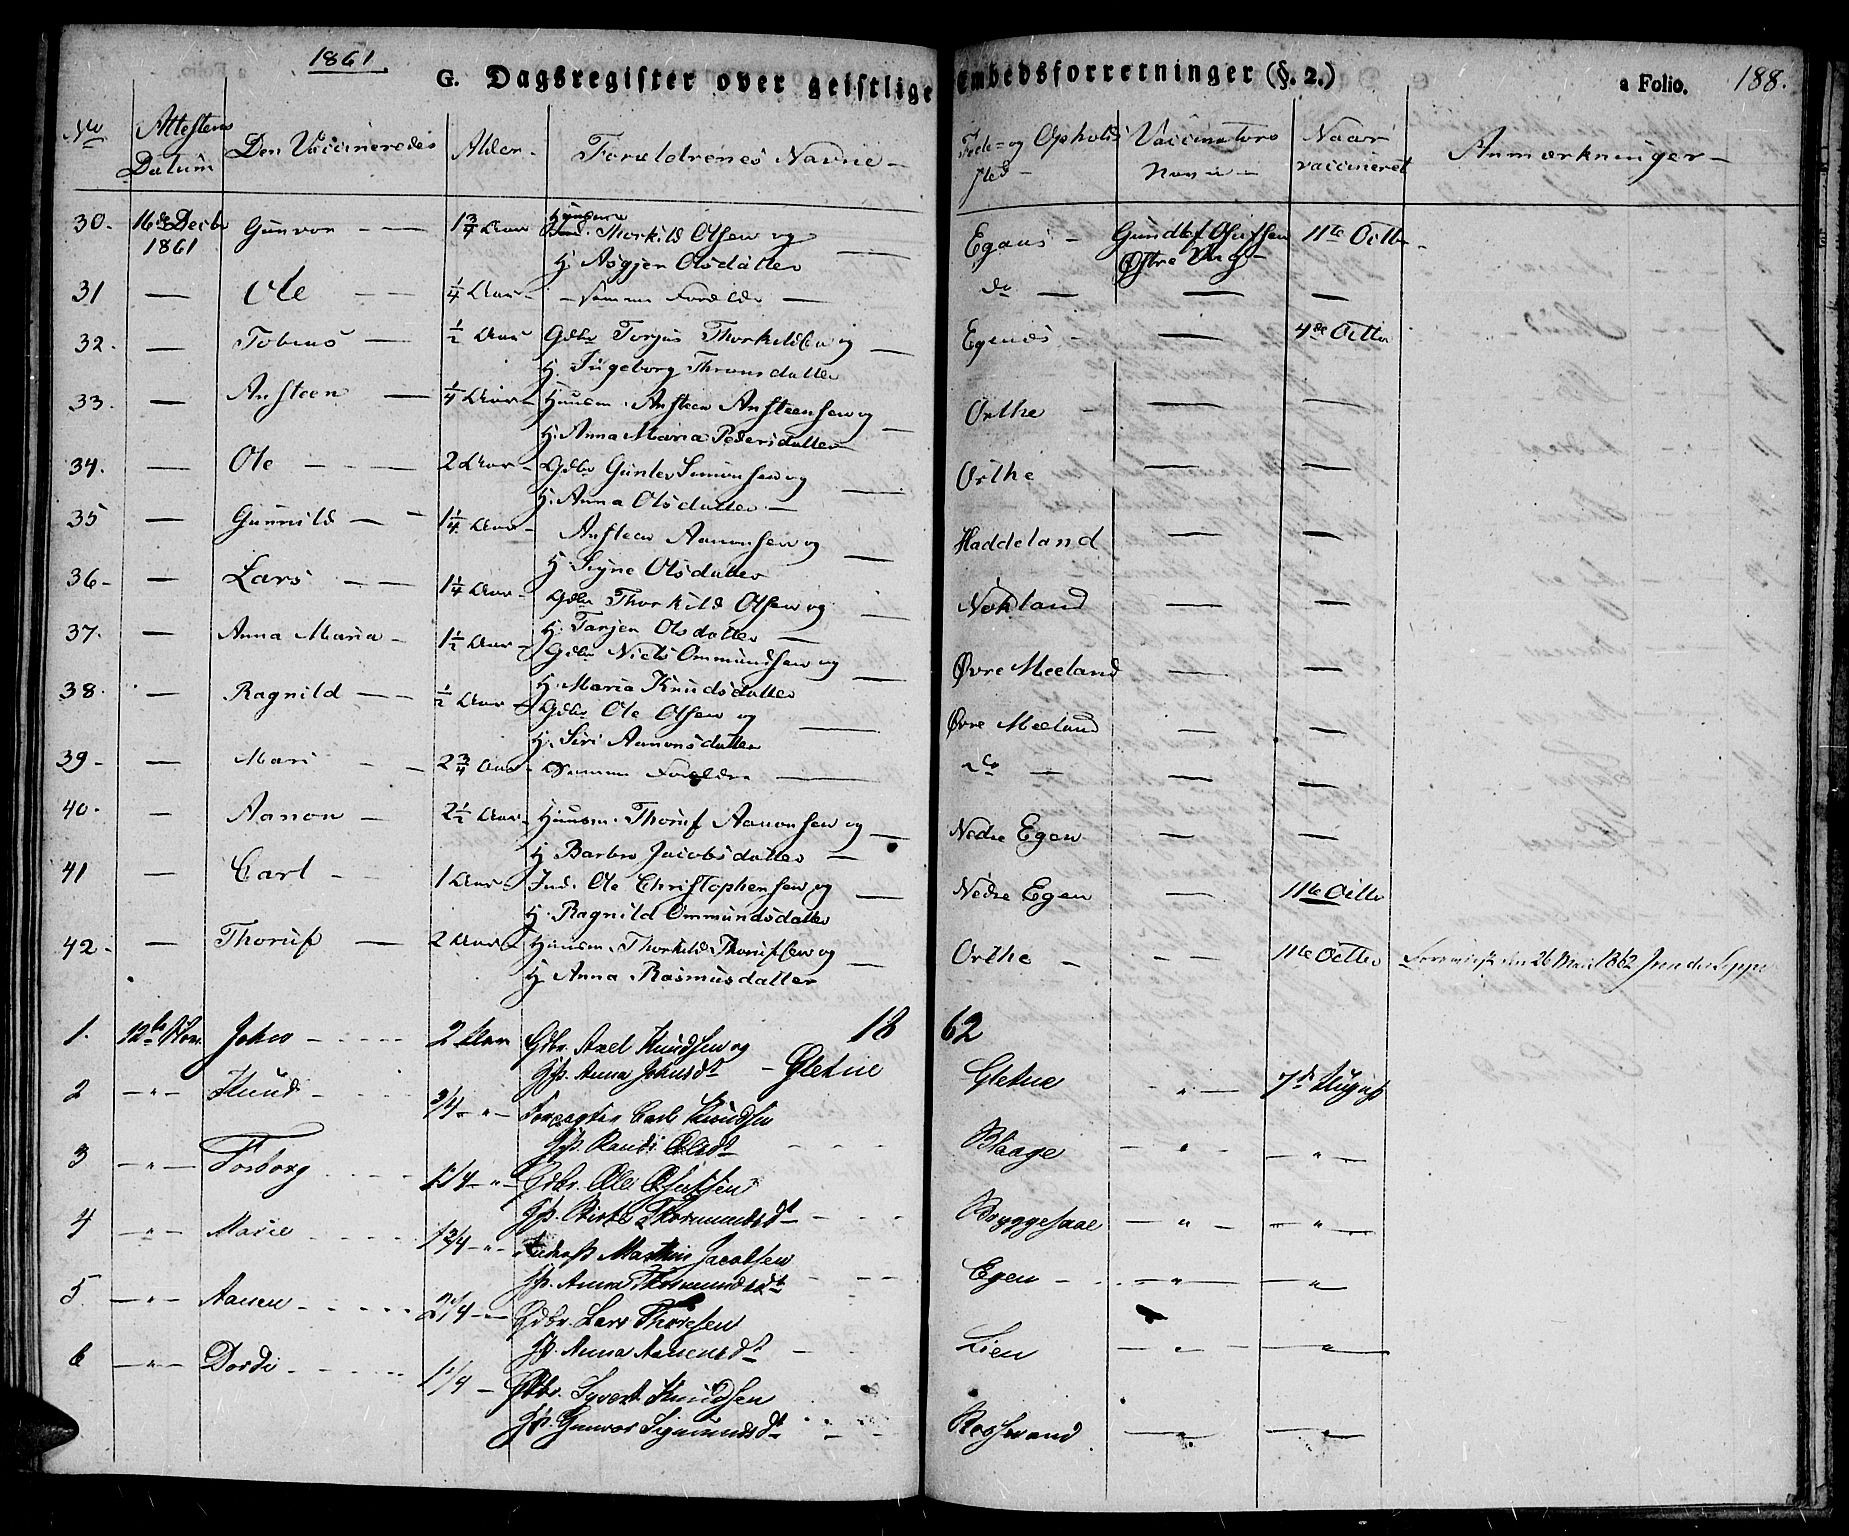 1861.
G. Dagsregister over geistlige Embedsforretninger (§. 2.) a Folio. 188.
No Attestens Datum Den Vaccineredes Alder Forældrenes Navne Føde- og Opholdssted Vaccinators Navn Naar vaccineret Anmærkninger
30. 16de Decbr 1861 Gunvor 1 3/4 Aar Thorkild Olsen og
H. Asgjer Olsdatter Egenes Østre 11te Octbr
31 — Ole 1/4 Aar samme Forældre do — —
32. — Tobias 1/2 Aar Gdbr Torjus Thorkildsen og
H. Ingeborg Thronsdatter Egenes — 4de Octbr
33. — Ansteen 1/4 Aar Huusm. Ansteen Ansteensen og
H. Anna Maria Pedersdatter Orthe — —
34. — Ole 2 Aar Gdbr Gunder Simonsen og
H. Anna Olsdatter Orthe — —
35 — Gunnild 1 1/4 Aar Ansteen Aanonsen og
H. Signe Olsdatter Haddeland — —
36 — Lars 1 1/4 Aar Gdbr Thorkild Olsen og
H. Tarjer Olsdatter — —
37. — Anna Maria 1 1/2 Aar Gdbr Niels Ommundsen og
H. Maria Knudsdatter Øvre Meeland — —
38. — Ragnild 1/2 Aar Gdbr Ole Olsen og
H. Siri Aanonsdatter Øvre Meeland — —
39 — Mari 2 3/4 Aar Samme Forældre do — —
40. — Aanon 2 1/2 Aar Huusm. Thoruf Aanonsen og
H. Barbro Jacobsdatter Nedre Egen — —
41 — Carl 1 Aar Ind. Ole Christophersen og
H. Ragnild Ommundsdatter Nedre Egen — 11te Octbr
42. — Thoruf 2 Aar Huusm. Thorkild Thorufsen og
H. Anna Rasmusdatter Orthe — 11te Octbr den 26 Mai 1862
1862
1. 12te Nov. John 2 Aar Gdbr. Axel Knudsen og
Anna Johnsdt — Gletne Gletne " 7de August
2 — " — Knud 3/4 " Forpagter Carl Knudsen
Randi Olsdt Blaage — " — — " —
3 — " — Torborg 1 1/4 " Gdbr. Ole
Thormundsdt Bryggesaae — " — — " —
4 — " — Marie 1 3/4 " Jacobsen
Anna Thormundsdt Egen — " — — " —
5. — " — Aanen 2 1/4 " Gdbr. Lars Thoresen
Anna Aanensdt Lien — " — — " —
6 — " — Dordi 1 1/4 — Gdbr. Syvert Knudsen
Gunvor Sigmundsdt Rosseland — " — — " —